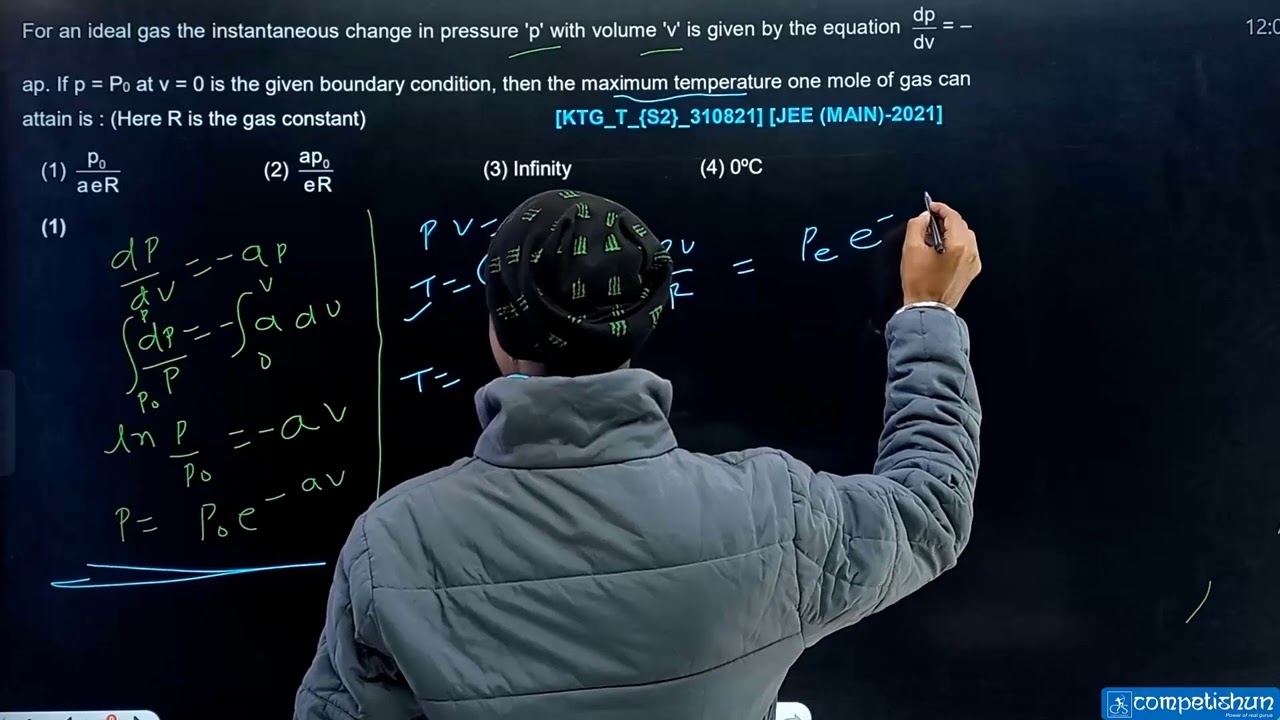 For an ideal gas the instantaneous change in pressure 'p' with volume 'v' is given by the equation dp/dv = –
12:0
ap. If p = P₀ at v = 0 is the given boundary condition, then the maximum temperature one mole of gas can
attain is : (Here R is the gas constant)
[KTG_T_{S2}_310821] [JEE (MAIN)-2021]
(1) p₀/aeR (2) ap₀/eR (3) Infinity (4) 0ºC
(1)
dP/dV = -aP
∫_{P₀}^{P} dP/P = -∫_{0}^{V} a dv
ln P/P₀ = -av
P = P₀e^{-av}
PV=
T=(
PV/R = P_e e^{-
T=
competishun
Power of real gurus